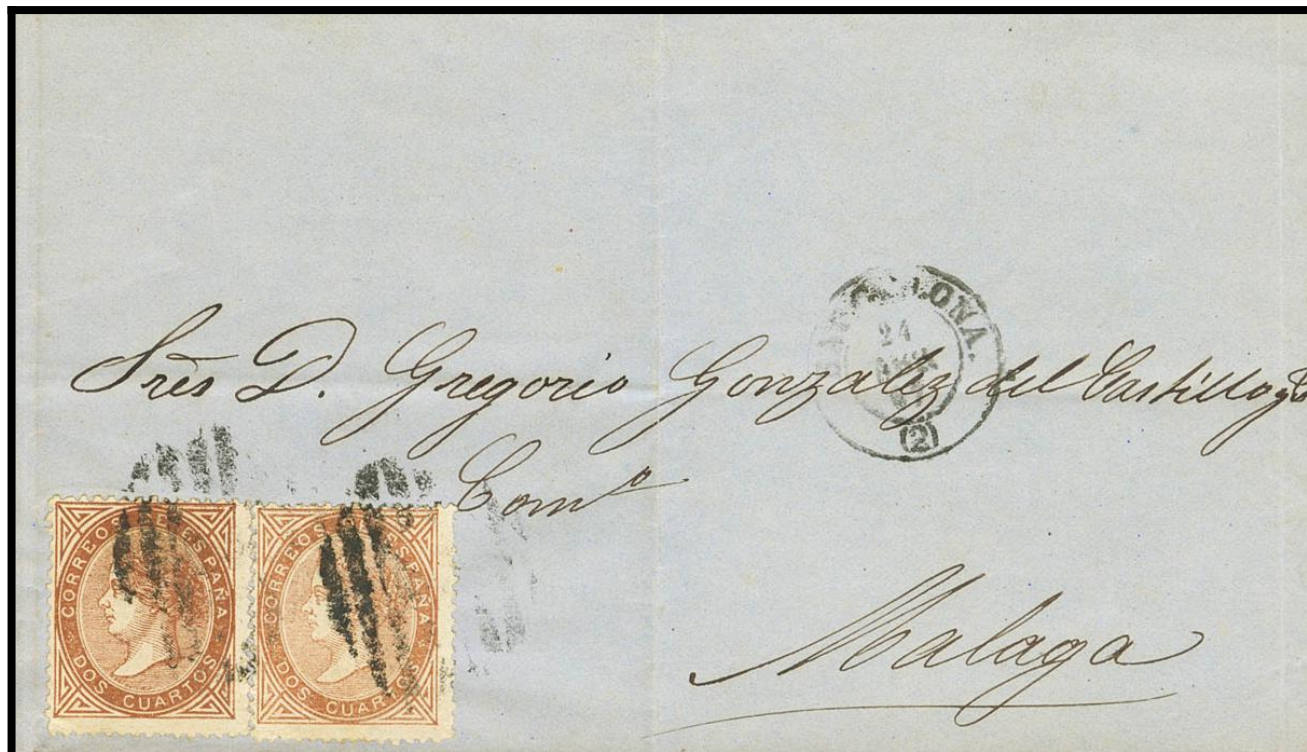 BARCELONA.
24
(2)
Srēs D. Gregorio Gonzalez del Castillo y
Comª
Malaga
CORREOS DE ESPAÑA
DOS CUARTOS
CORREOS DE ESPAÑA
DOS CUARTOS